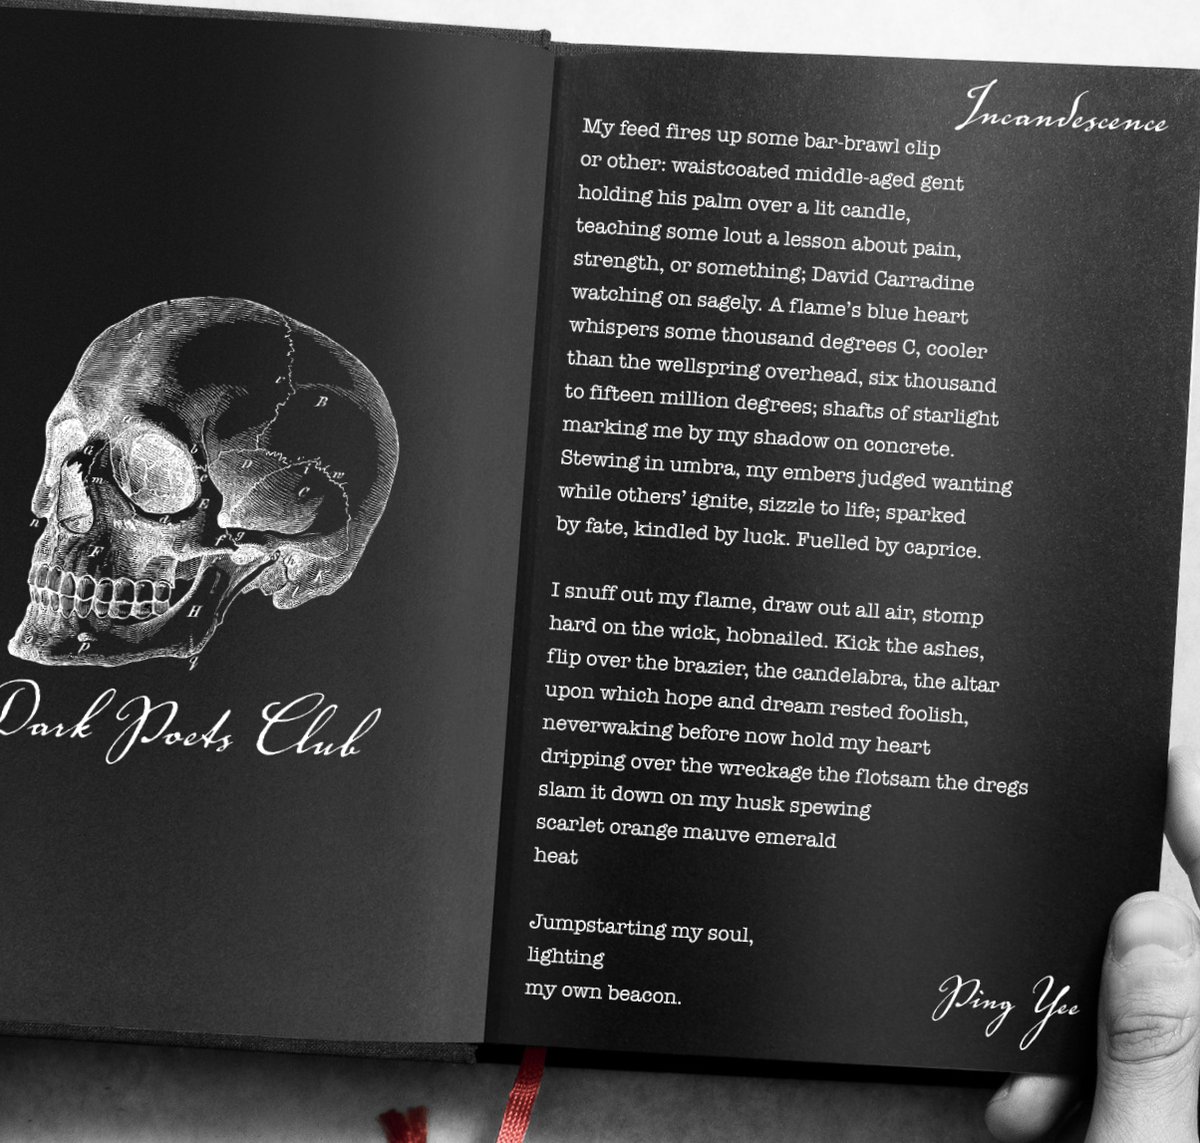 Dark Poets Club
Incandescence
My feed fires up some bar-brawl clip
or other: waistcoated middle-aged gent
holding his palm over a lit candle,
teaching some lout a lesson about pain,
strength, or something; David Carradine
watching on sagely. A flame's blue heart
whispers some thousand degrees C, cooler
than the wellspring overhead, six thousand
to fifteen million degrees; shafts of starlight
marking me by my shadow on concrete.
Stewing in umbra, my embers judged wanting
while others' ignite, sizzle to life; sparked
by fate, kindled by luck. Fuelled by caprice.
I snuff out my flame, draw out all air, stomp
hard on the wick, hobnailed. Kick the ashes,
flip over the brazier, the candelabra, the altar
upon which hope and dream rested foolish,
neverwaking before now hold my heart
dripping over the wreckage the flotsam the dregs
slam it down on my husk spewing
scarlet orange mauve emerald
heat
Jumpstarting my soul,
lighting
my own beacon.
Ping Yee